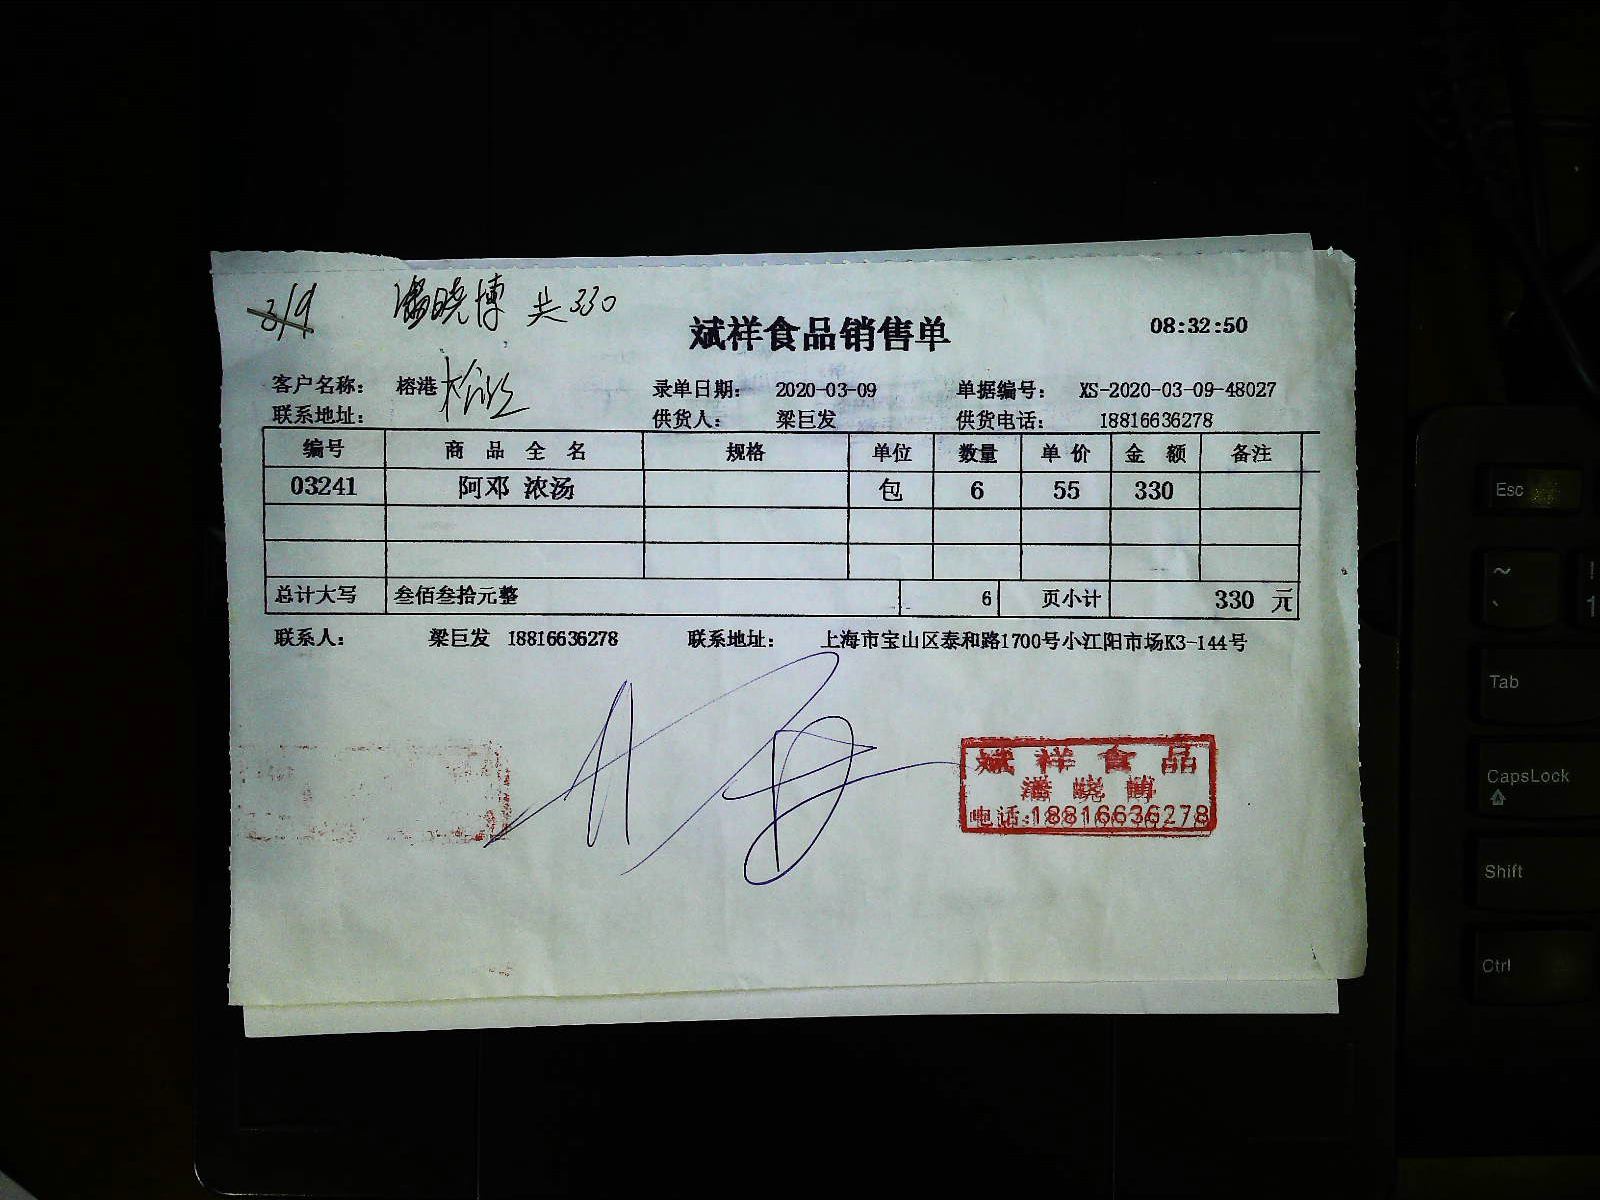 3/9 潘晓博 共330
斌祥食品销售单 08:32:50
客户名称： 榕港 录单日期： 2020-03-09 单据编号： XS-2020-03-09-48027
联系地址： 供货人： 梁巨发 供货电话： 18816636278
编号 商 品 全 名 规格 单位 数量 单 价 金 额 备注
03241 阿邓 浓汤 包 6 55 330
总计大写 叁佰叁拾元整 6 页小计 330 元
联系人： 梁巨发 18816636278 联系地址： 上海市宝山区泰和路1700号小江阳市场K3-144号
斌祥食品
潘晓博
电话:18816636278
Esc
~
、
!
1
Tab
CapsLock
Shift
Ctrl